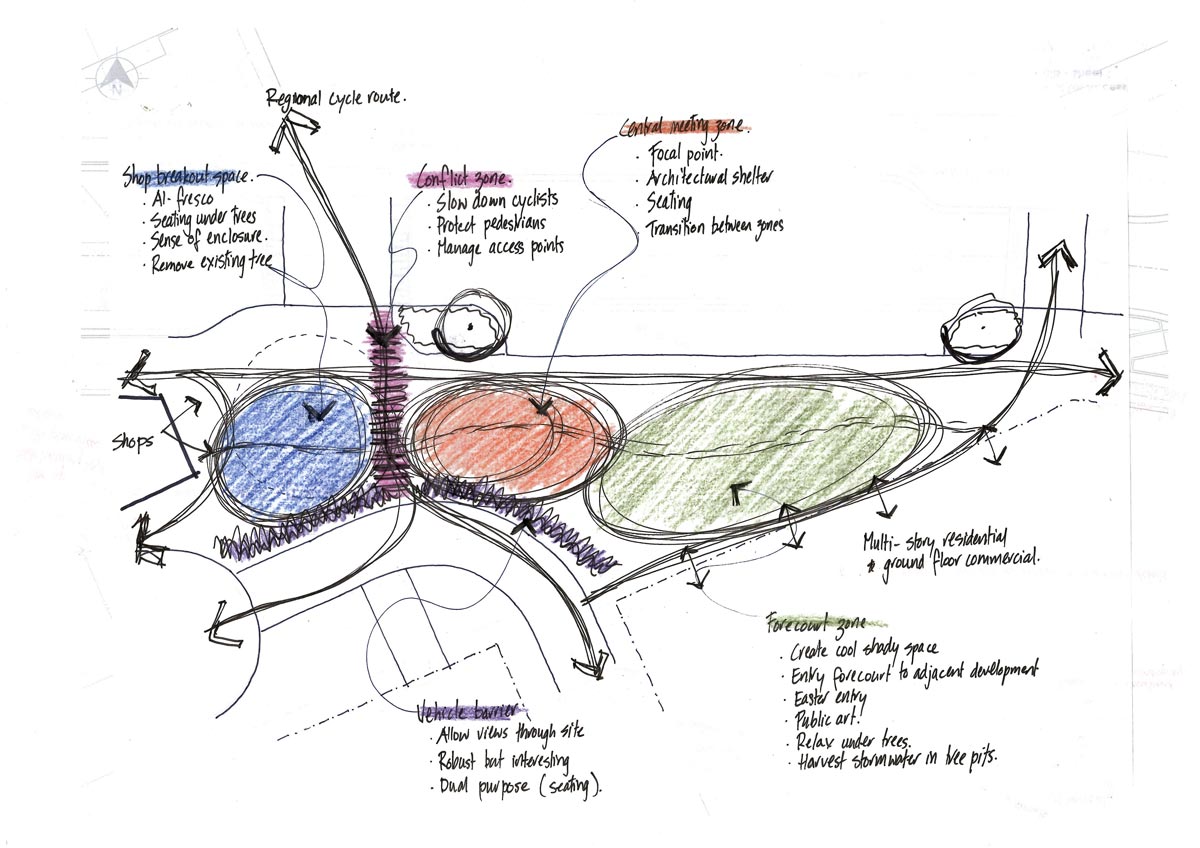 N
Regional cycle route.
Shop breakout space.
· Al-fresco
· Seating under trees
· Sense of enclosure.
· Remove existing tree
Conflict zone.
· Slow down cyclists
· Protect pedestrians
· Manage access points
Central meeting zone.
· Focal point.
· Architectural shelter
· Seating
· Transition between zones
Shops
Multi-story residential
& ground floor commercial.
Forecourt zone
· Create cool shady space
· Entry forecourt to adjacent development
· Easter entry
· Public art.
· Relax under trees.
· Harvest stormwater in tree pits.
Vehicle barrier
· Allow views through site
· Robust but interesting
· Dual purpose (seating).